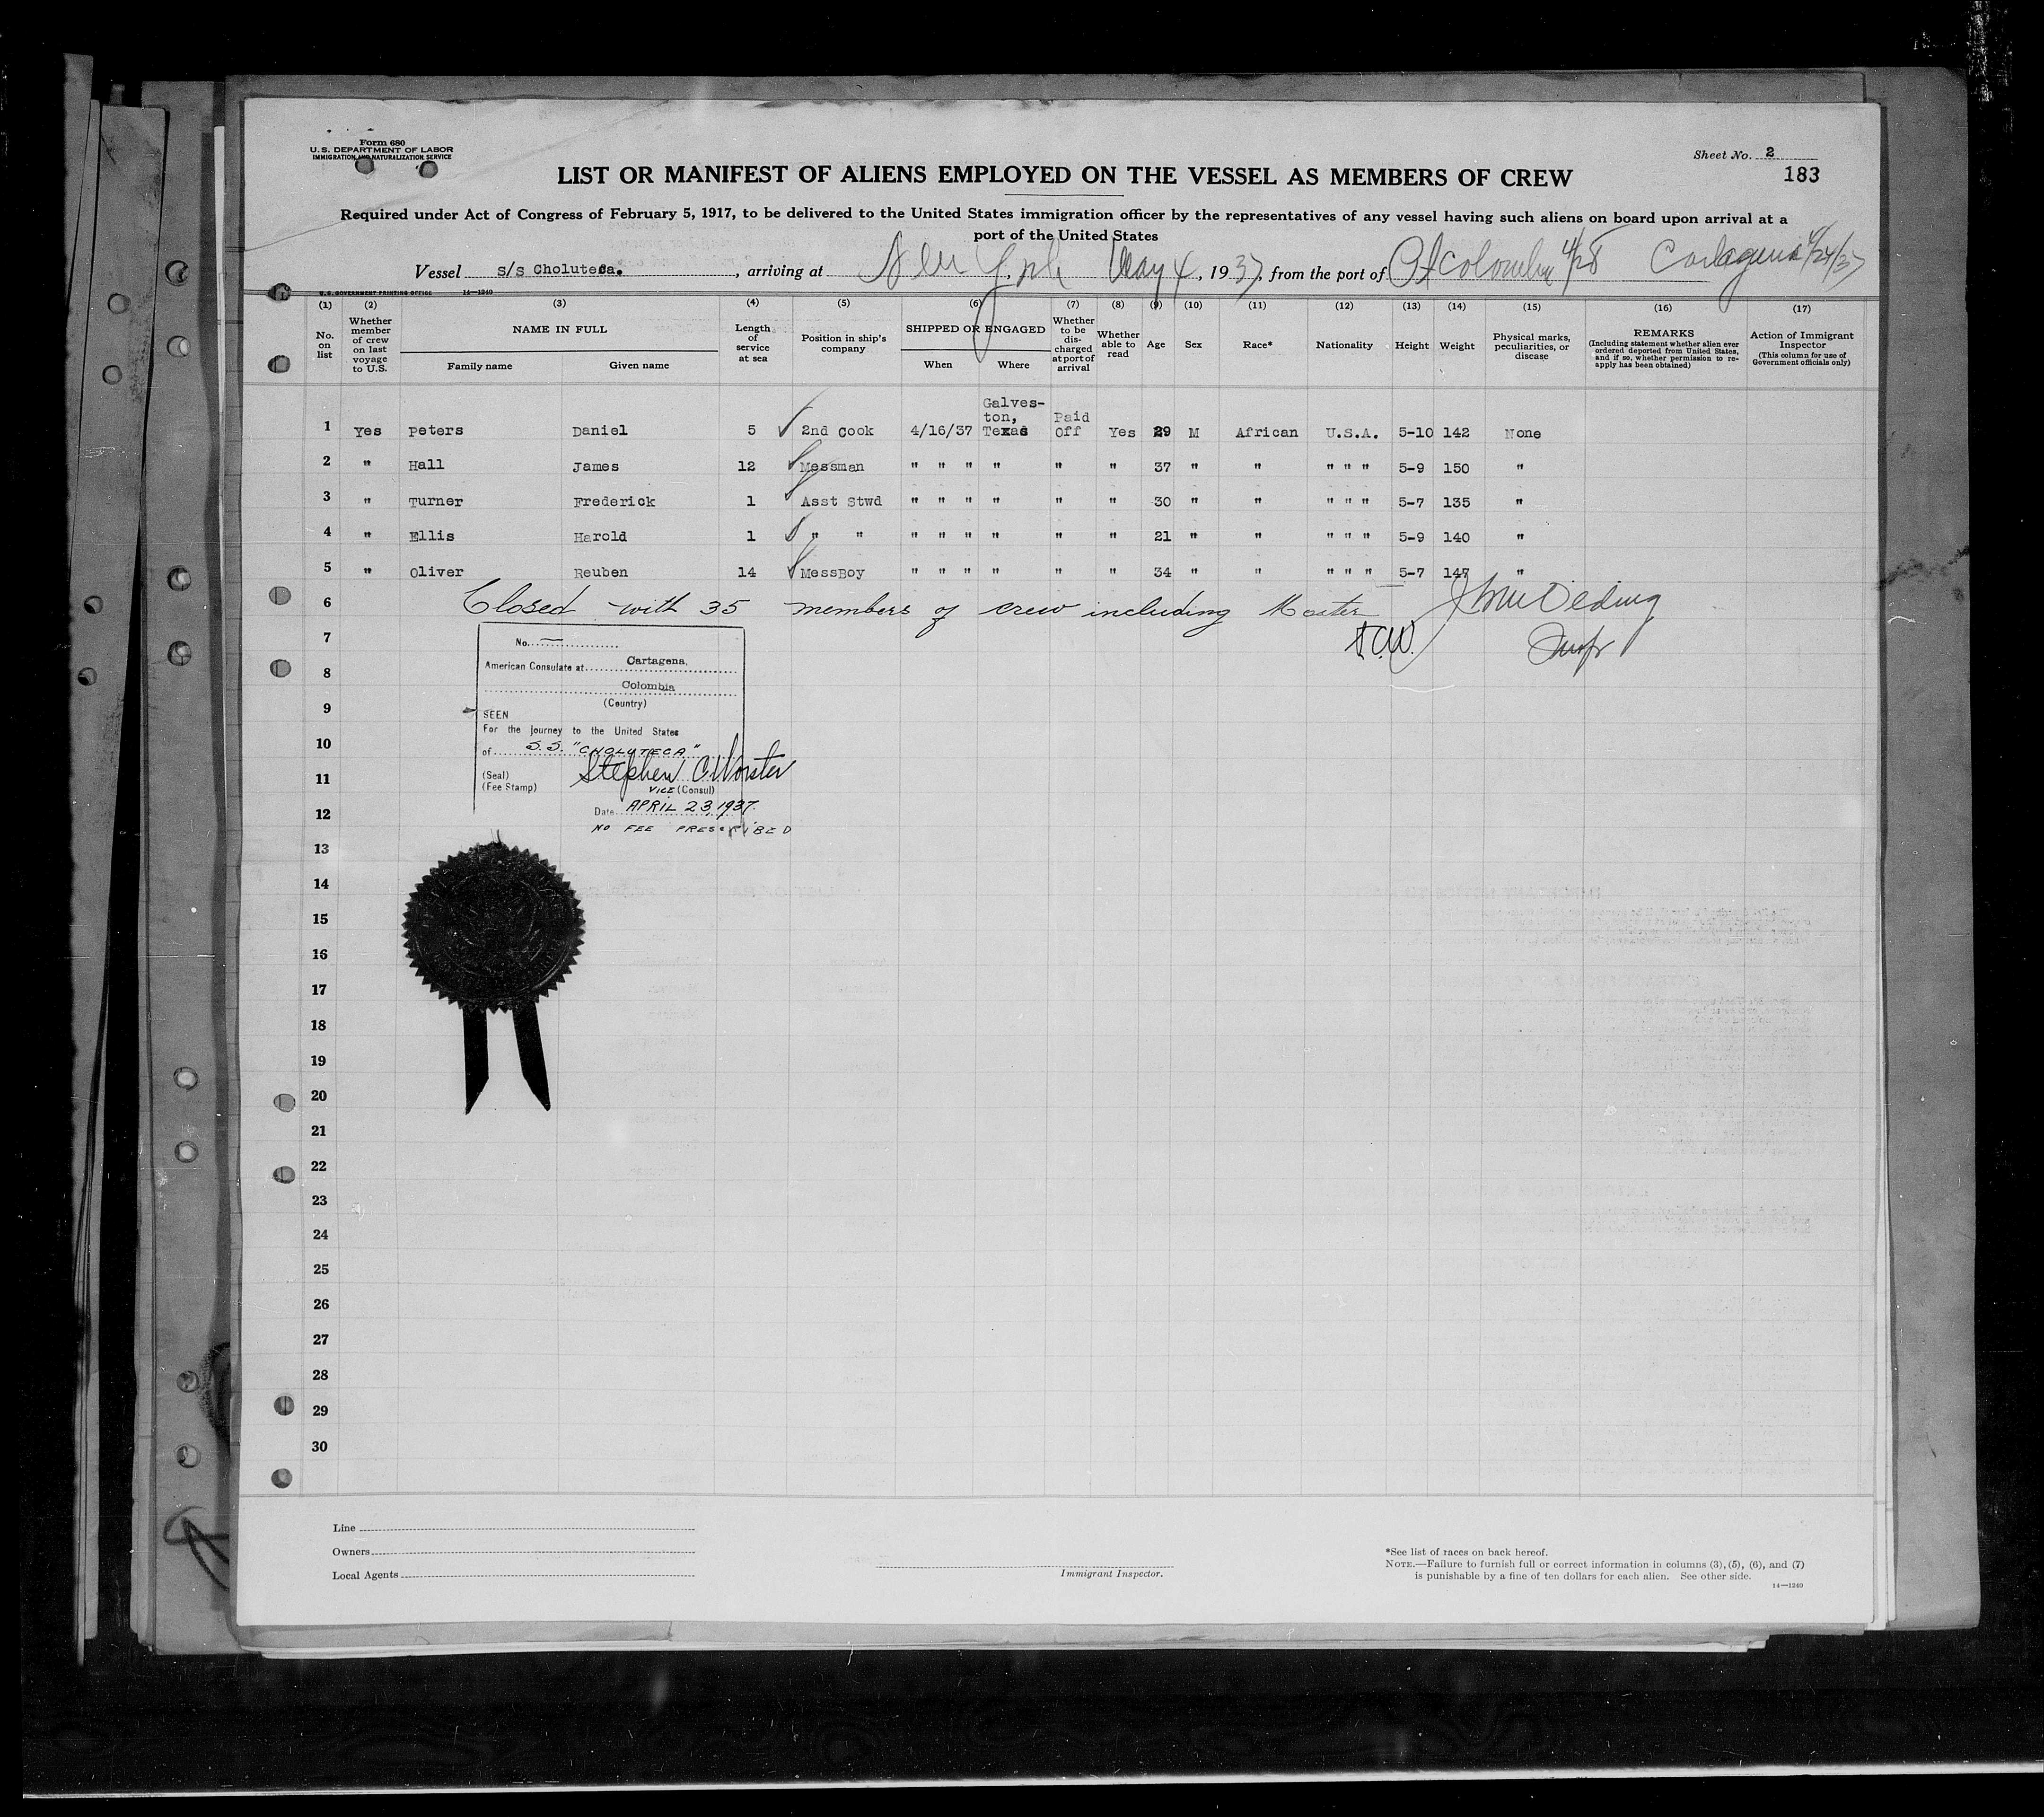 Form 680
U.S. DEPARTMENT OF LABOR
IMMIGRATION AND NATURALIZATION SERVICE
Sheet No. 2
183
LIST OR MANIFEST OF ALIENS EMPLOYED ON THE VESSEL AS MEMBERS OF CREW
Required under Act of Congress of February 5, 1917, to be delivered to the United States immigration officer by the representatives of any vessel having such aliens on board upon arrival at a
port of the United States
Vessel s/s Choluteca. , arriving at New York May 4, 1937, from the port of Pt Colombia 4/28 Cartagena 4/24/37
U.S. GOVERNMENT PRINTING OFFICE 14—1240
(1) (2) (3) (4) (5) (6) (7) (8) (9) (10) (11) (12) (13) (14) (15) (16) (17)
No. on list
Whether member of crew on last voyage to U.S.
NAME IN FULL
Family name Given name
Length of service at sea
Position in ship's company
SHIPPED OR ENGAGED
When Where
Whether to be discharged at port of arrival
Whether able to read
Age
Sex
Race*
Nationality
Height
Weight
Physical marks, peculiarities, or disease
REMARKS
(Including statement whether alien ever ordered deported from United States, and if so, whether permission to re-apply has been obtained)
Action of Immigrant Inspector
(This column for use of Government officials only)
1 Yes Peters Daniel 5 2nd Cook 4/16/37 Galves-ton, Texas Paid Off Yes 29 M African U.S.A. 5-10 142 None
2 " Hall James 12 Messman " " " " " " 37 " " " " " 5-9 150 "
3 " Turner Frederick 1 Asst Stwd " " " " " " 30 " " " " " 5-7 135 "
4 " Ellis Harold 1 " " " " " " " " 21 " " " " " 5-9 140 "
5 " Oliver Reuben 14 MessBoy " " " " " " 34 " " " " " 5-7 147 "
6 Closed with 35 members of crew including Master
7
8
9
10
11
12
13
14
15
16
17
18
19
20
21
22
23
24
25
26
27
28
29
30
S.C.W.
No.
American Consulate at Cartagena,
Colombia
(Country)
SEEN
For the journey to the United States
of S.S. "CHOLUTECA"
Stephen C. Worster
(Seal)
(Fee Stamp)
VICE (Consul)
Date APRIL 23, 1937.
NO FEE PRESCRIBED
Line
Owners
Local Agents
Immigrant Inspector.
*See list of races on back hereof.
NOTE.—Failure to furnish full or correct information in columns (3), (5), (6), and (7)
is punishable by a fine of ten dollars for each alien. See other side.
14—1240